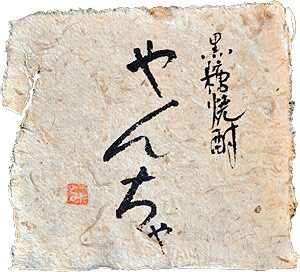 黒糖焼酎
やんちゃ